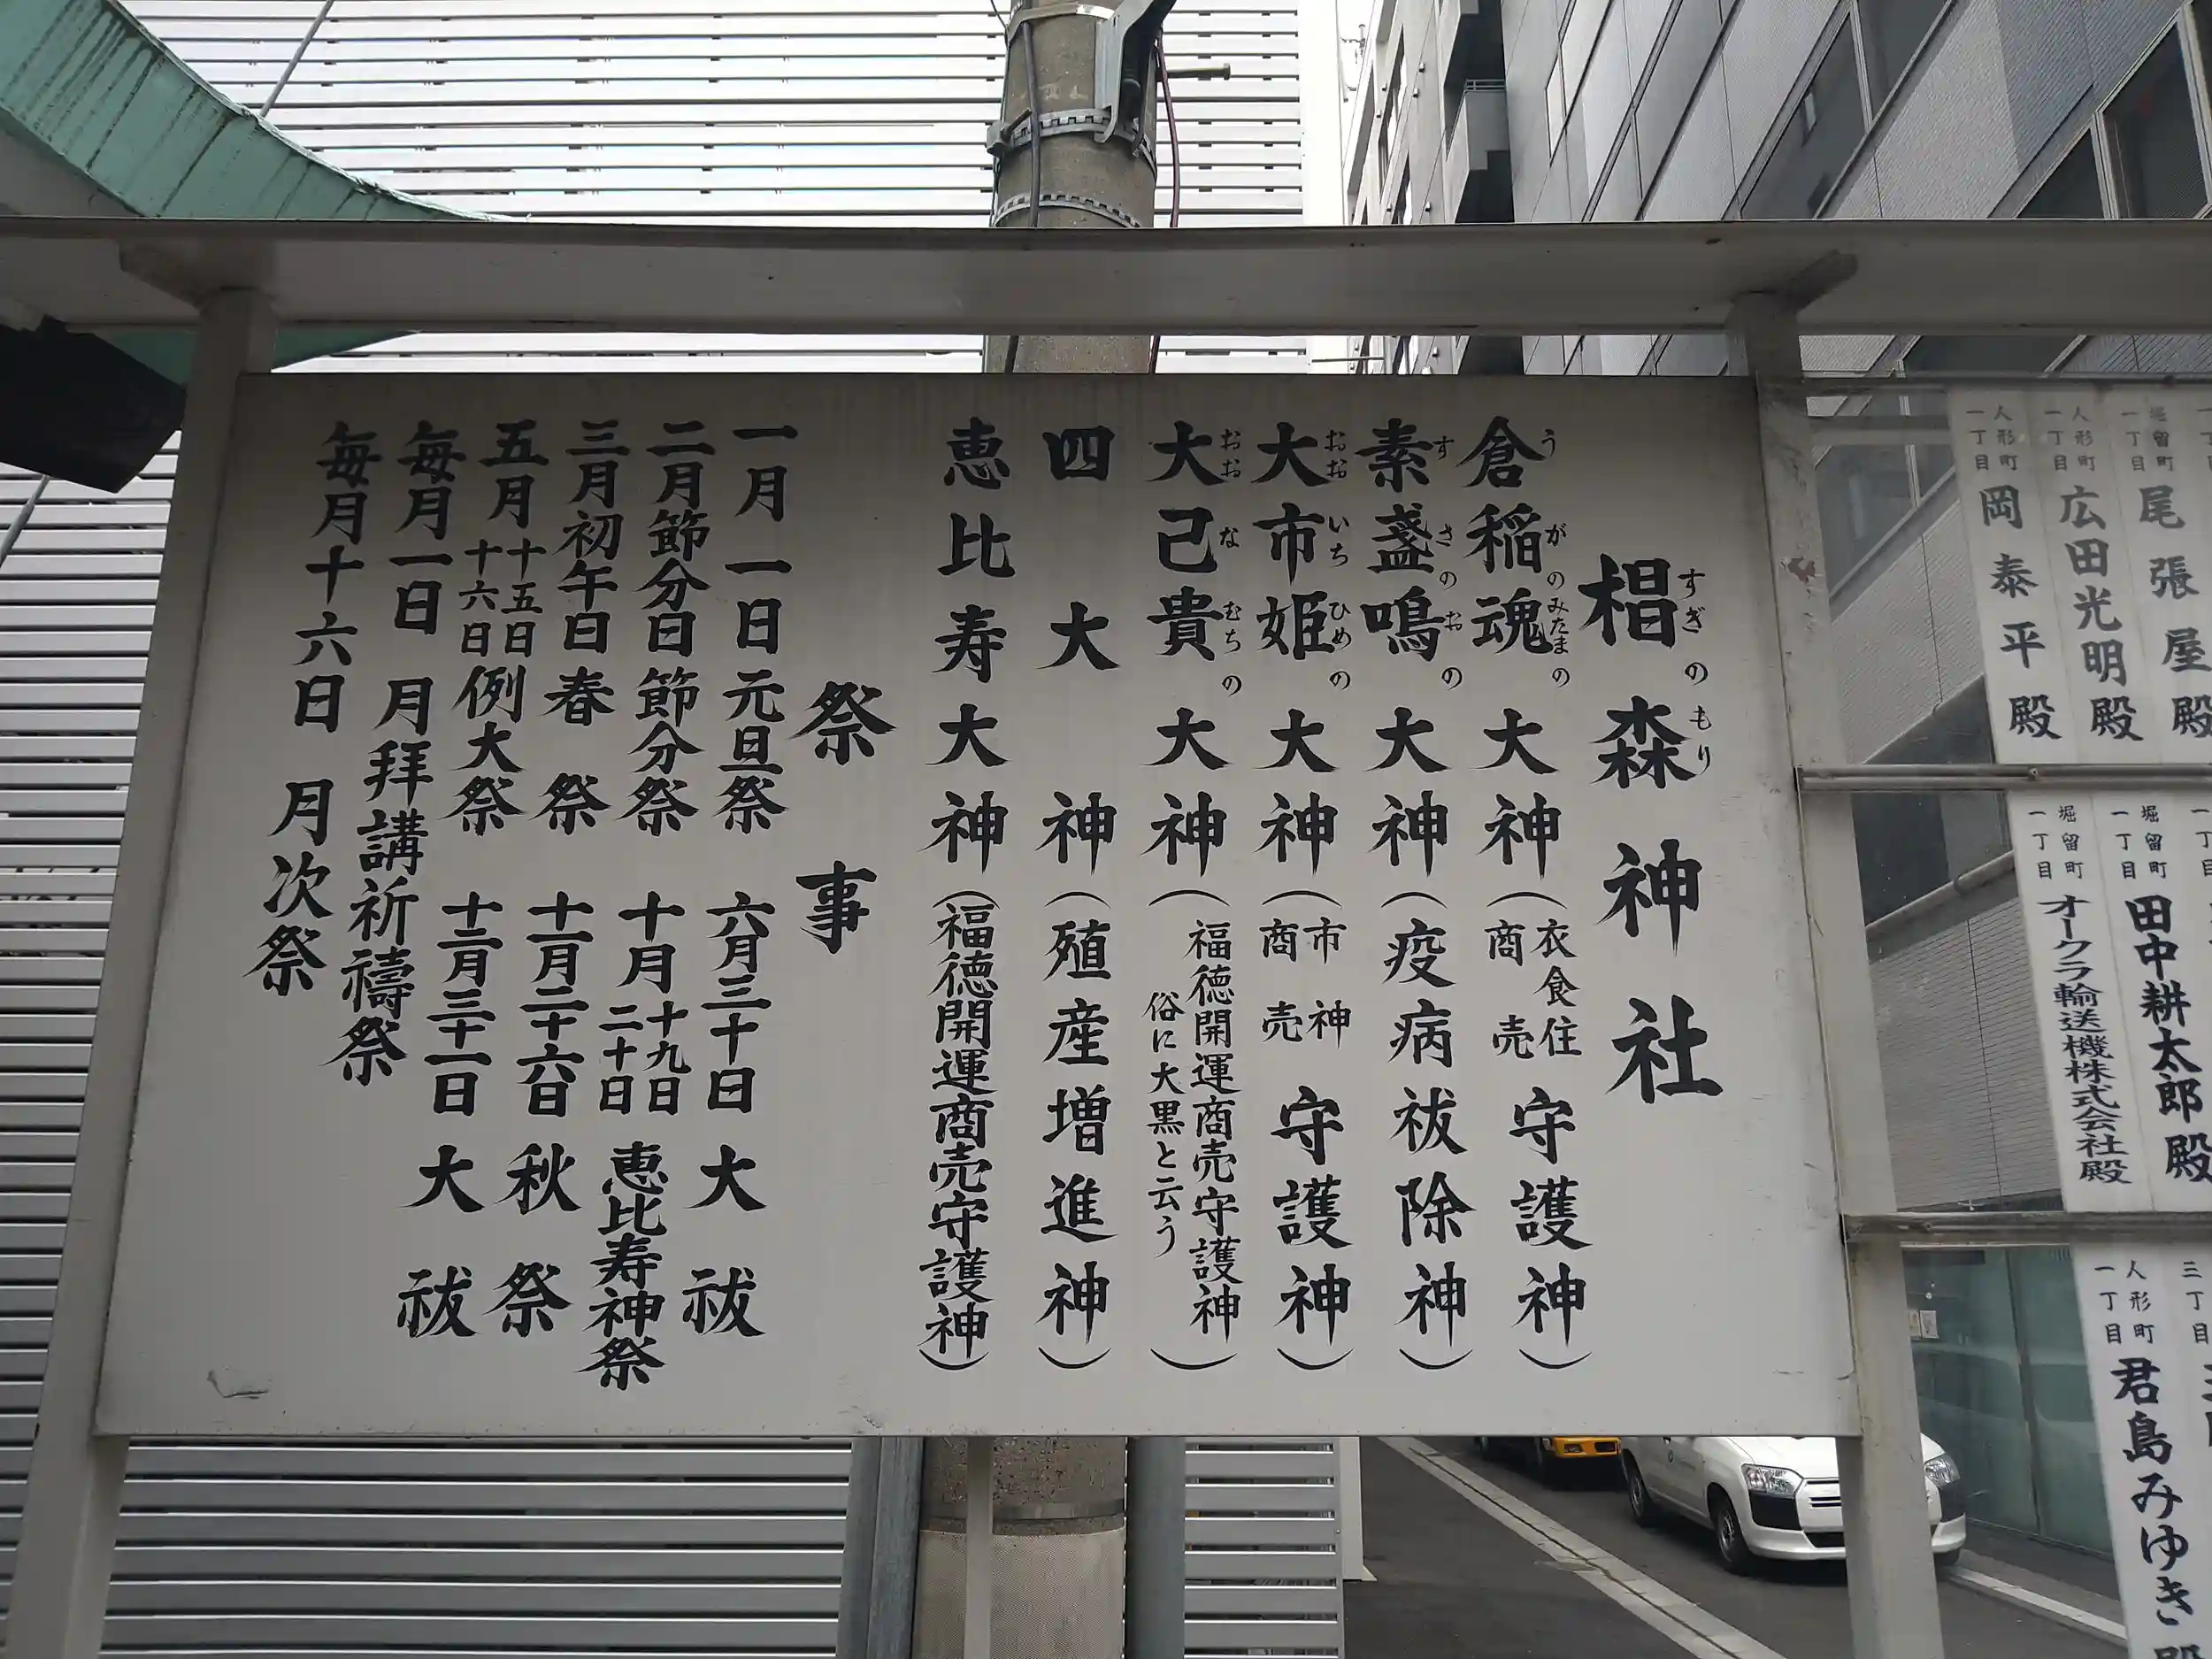 椙森神社
すぎのもり
倉稲魂大神（衣食住商売守護神）
うがのみたまの
素盞鳴大神（疫病祓除神）
すさのおの
大市姫大神（市神商売守護神）
おおいちひめの
大己貴大神（福徳開運商売守護神俗に大黒と云う）
おおなむちの
四大神（殖産増進神）
恵比寿大神（福徳開運商売守護神）
祭事
一月一日元旦祭
六月三十日大祓
二月節分日節分祭
十月十九日二十日恵比寿神祭
三月初午日春祭
十一月二十六日秋祭
五月十五日十六日例大祭
十二月三十一日大祓
毎月一日月拝講祈禱祭
毎月十六日月次祭
堀留町一丁目尾張屋殿
人形町一丁目広田光明殿
人形町一丁目岡泰平殿
堀留町一丁目田中耕太郎殿
堀留町一丁目オークラ輸送機株式会社殿
三丁目
人形町一丁目君島みゆき殿